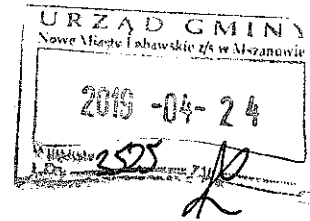 URZĄD GMINY
Nowe Miasto Lubawskie z/s w Mszanowie
2019 -04- 24
2525